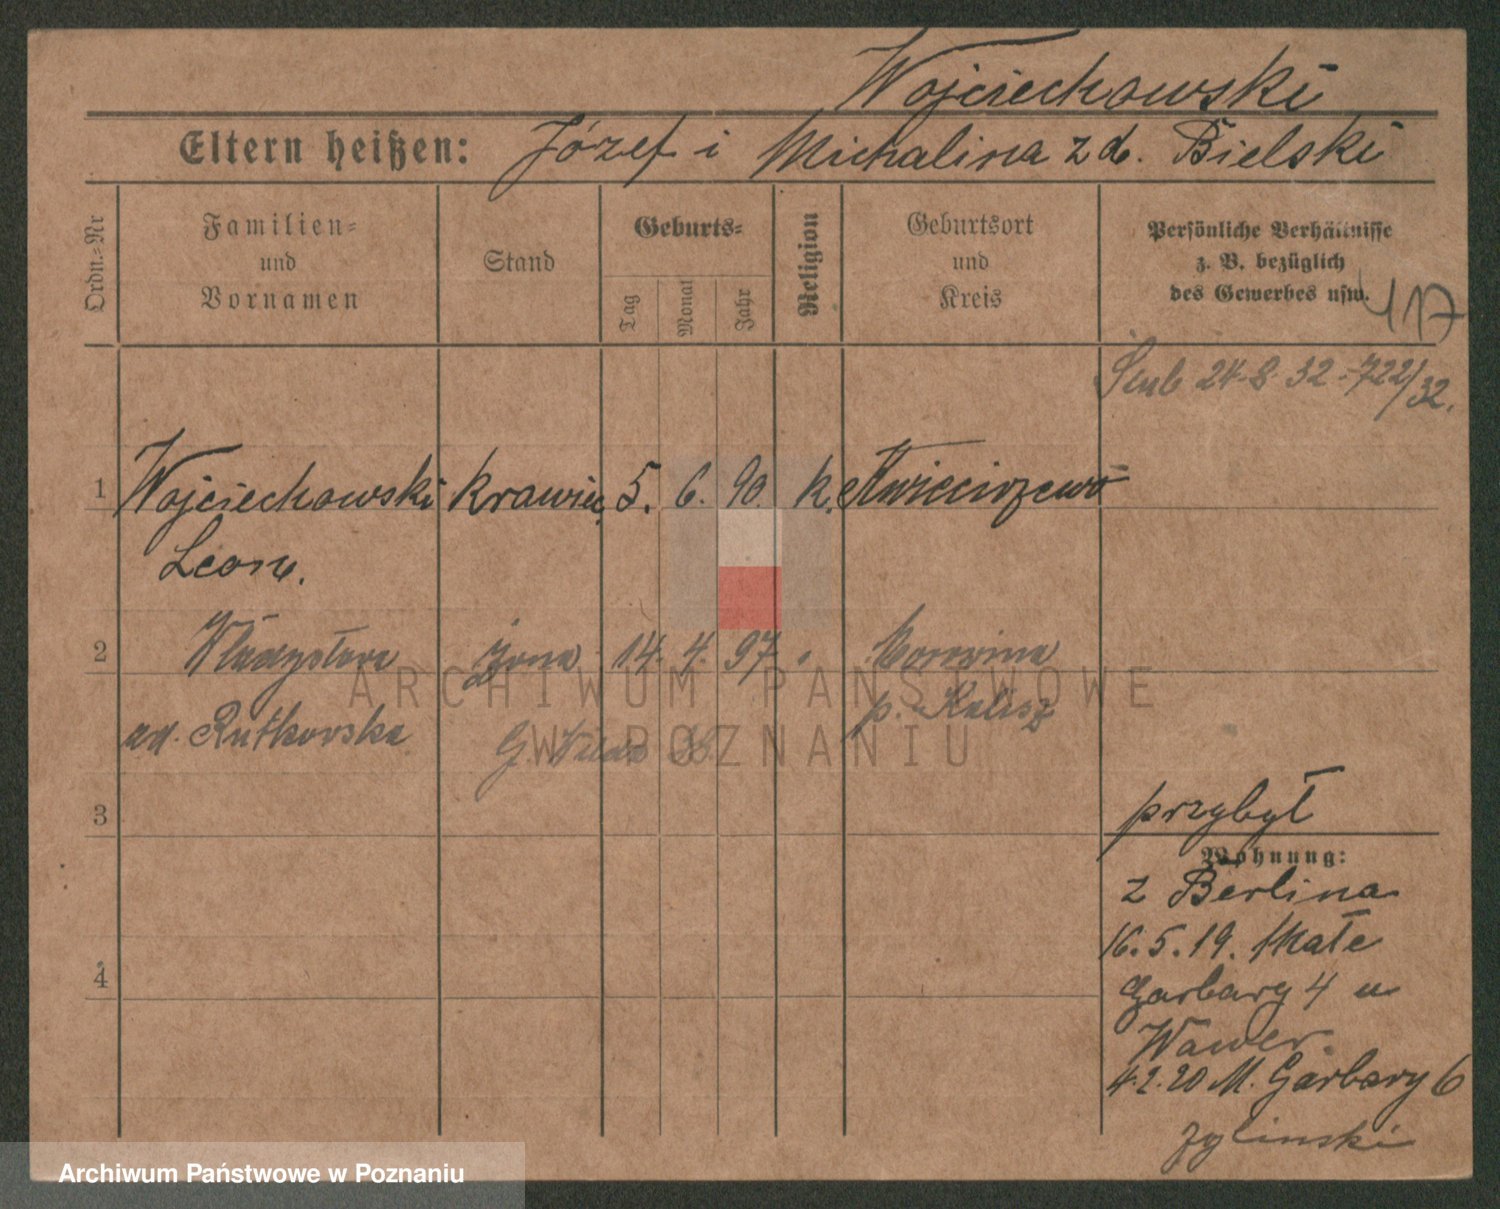 Wojciechowski
Eltern heißen: Józef i Michalina z d. Bielski
Ordn.-Nr
Familien- und Vornamen
Stand
Geburts-
Tag
Monat
Jahr
Religion
Geburtsort und Kreis
Persönliche Verhältnisse
z. B. bezüglich
des Gewerbes usw.
417
24.8.32 - 722/32.
1 Wojciechowski krawiec 5. 6. 90. k. Kwieciszewo
Leon.
2 Władysława żona 14. 4. 97 "
p. Kalisz
Rutkowska
G. Wilda
3
przybył
Wohnung:
z Berlina
16.5.19. Małe
Garbary 4 u
Wawer.
4.2.20 M. Garbary 6
Zylinski
4
ARCHIWUM PAŃSTWOWE
W POZNANIU
Archiwum Państwowe w Poznaniu